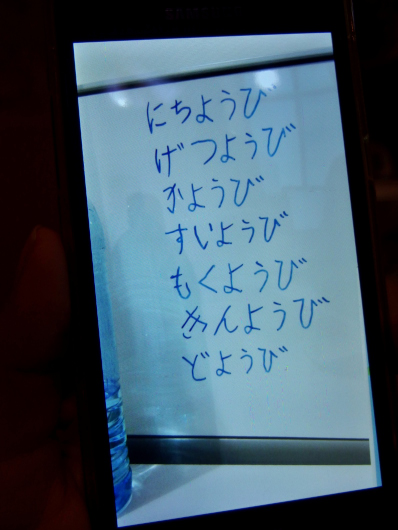 にちようび
げつようび
かようび
すいようび
もくようび
きんようび
どようび